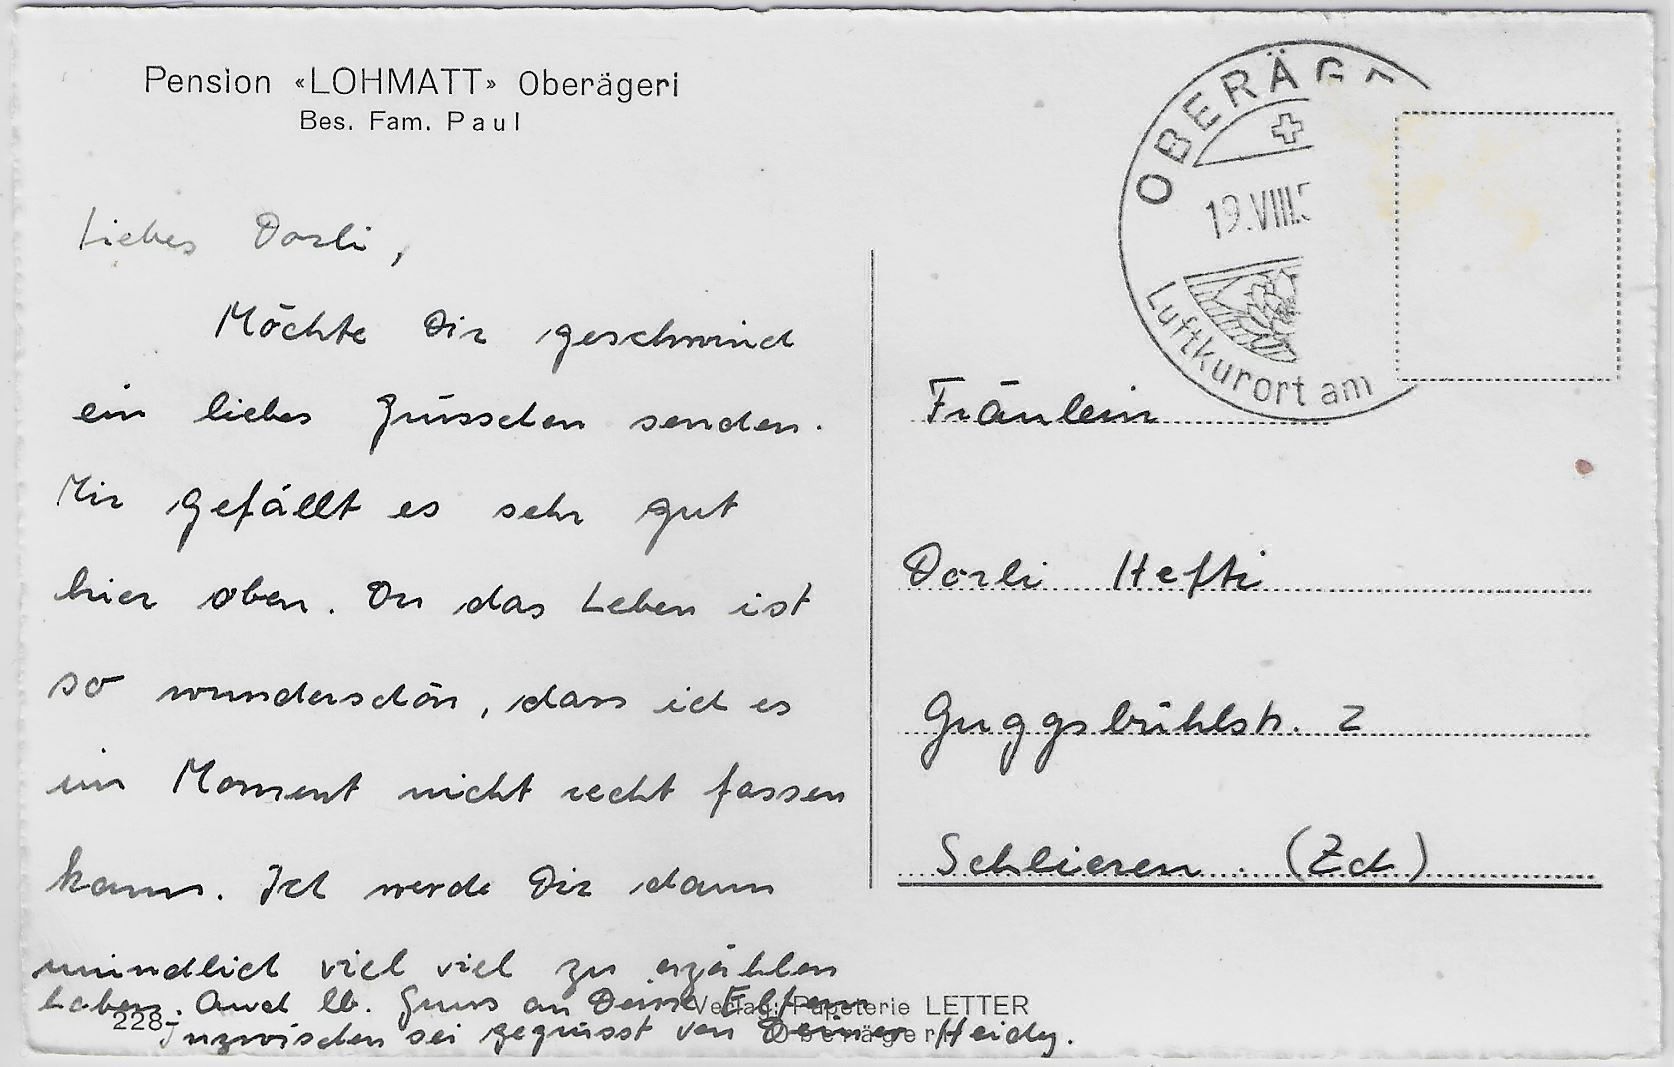 Pension «LOHMATT» Oberägeri
Bes. Fam. Paul
OBERÄGE
19.VIII.5
Luftkurort am
Liebes Dorli,
Möchte Dir geschwind
ein liebes Grüsschen senden.
Mir gefällt es sehr gut
hier oben. Du das Leben ist
so wunderschön, dass ich es
im Moment nicht recht fassen
kann. Ich werde Dir dann
mündlich viel viel zu erzählen
haben. Auch lb. Gruss an Deine Eltern
Inzwischen sei gegrüsst von Deiner Heidy.
228
Verlag: Papeterie LETTER
Oberägeri
Fräulein
Dorli Hefti
Guggsbühlstr. 2
Schlieren (Zch)